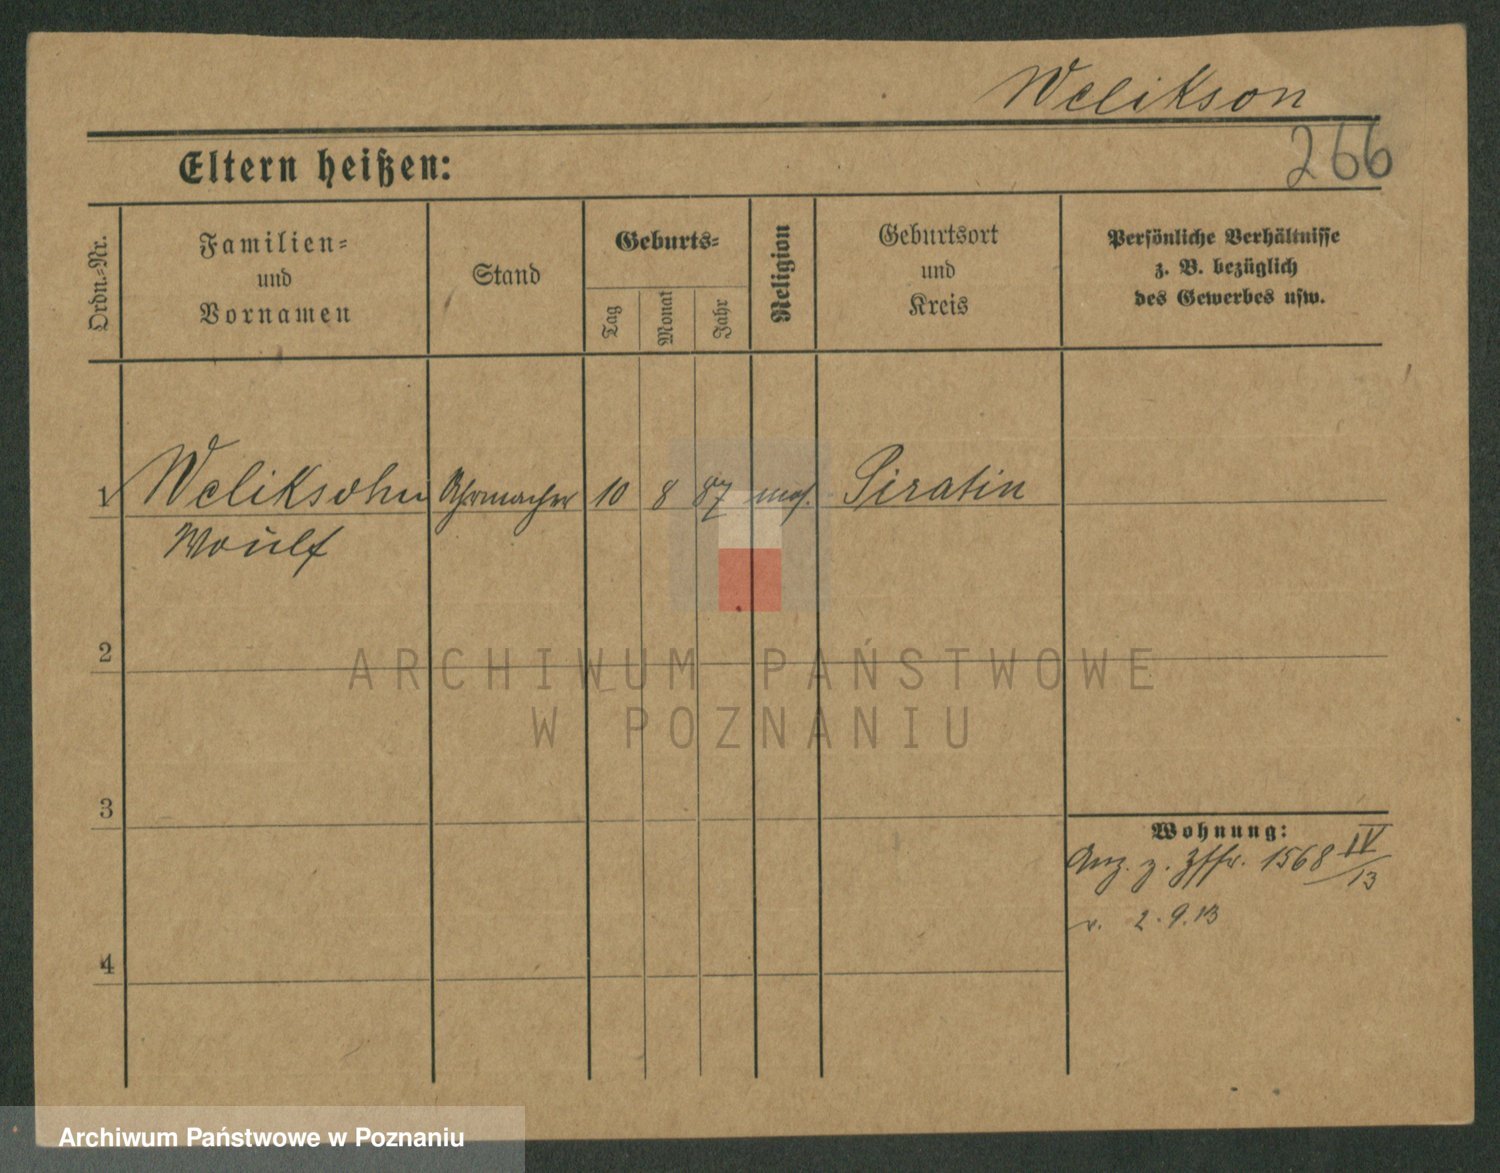 Welikson
266
Eltern heißen:
Ordn.-Nr.
Familien-
und
Vornamen
Stand
Geburts-
Tag
Monat
Jahr
Religion
Geburtsort
und
Kreis
Persönliche Verhältnisse
z. B. bezüglich
des Gewerbes usw.
1 Weliksohn Uhrmacher 10 8 87 mos. Piratin
Woulf
2
3
4
Wohnung:
Anz. z. 1568 IV/13
v. 2.9.13
ARCHIWUM PAŃSTWOWE
W POZNANIU
Archiwum Państwowe w Poznaniu